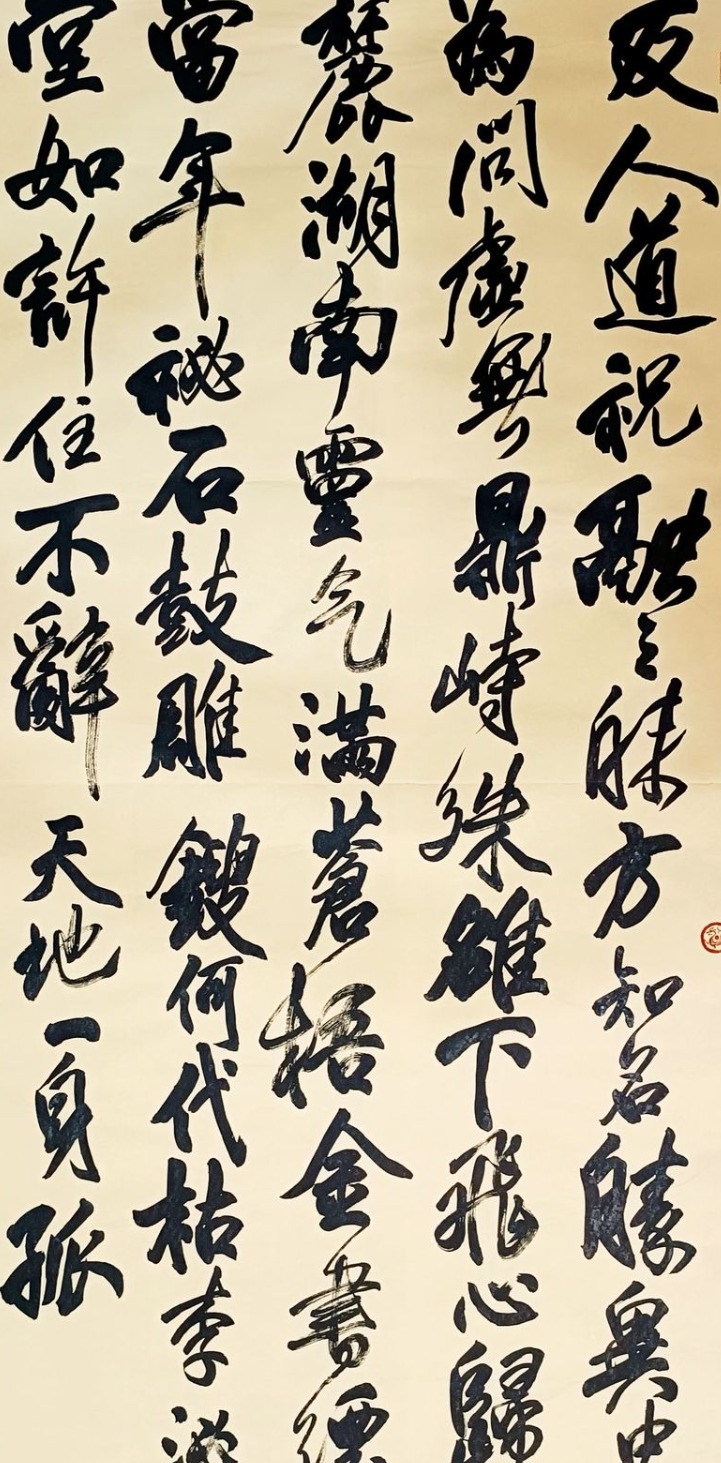 人道祝融之方知名勝異中
為問虛無鼎峙殊雖下飛心歸
麓湖南靈气滿蒼梧金書縹
當年祕石鼓雕鎪何代枯李泌
堂如許住不辭天地一身孤